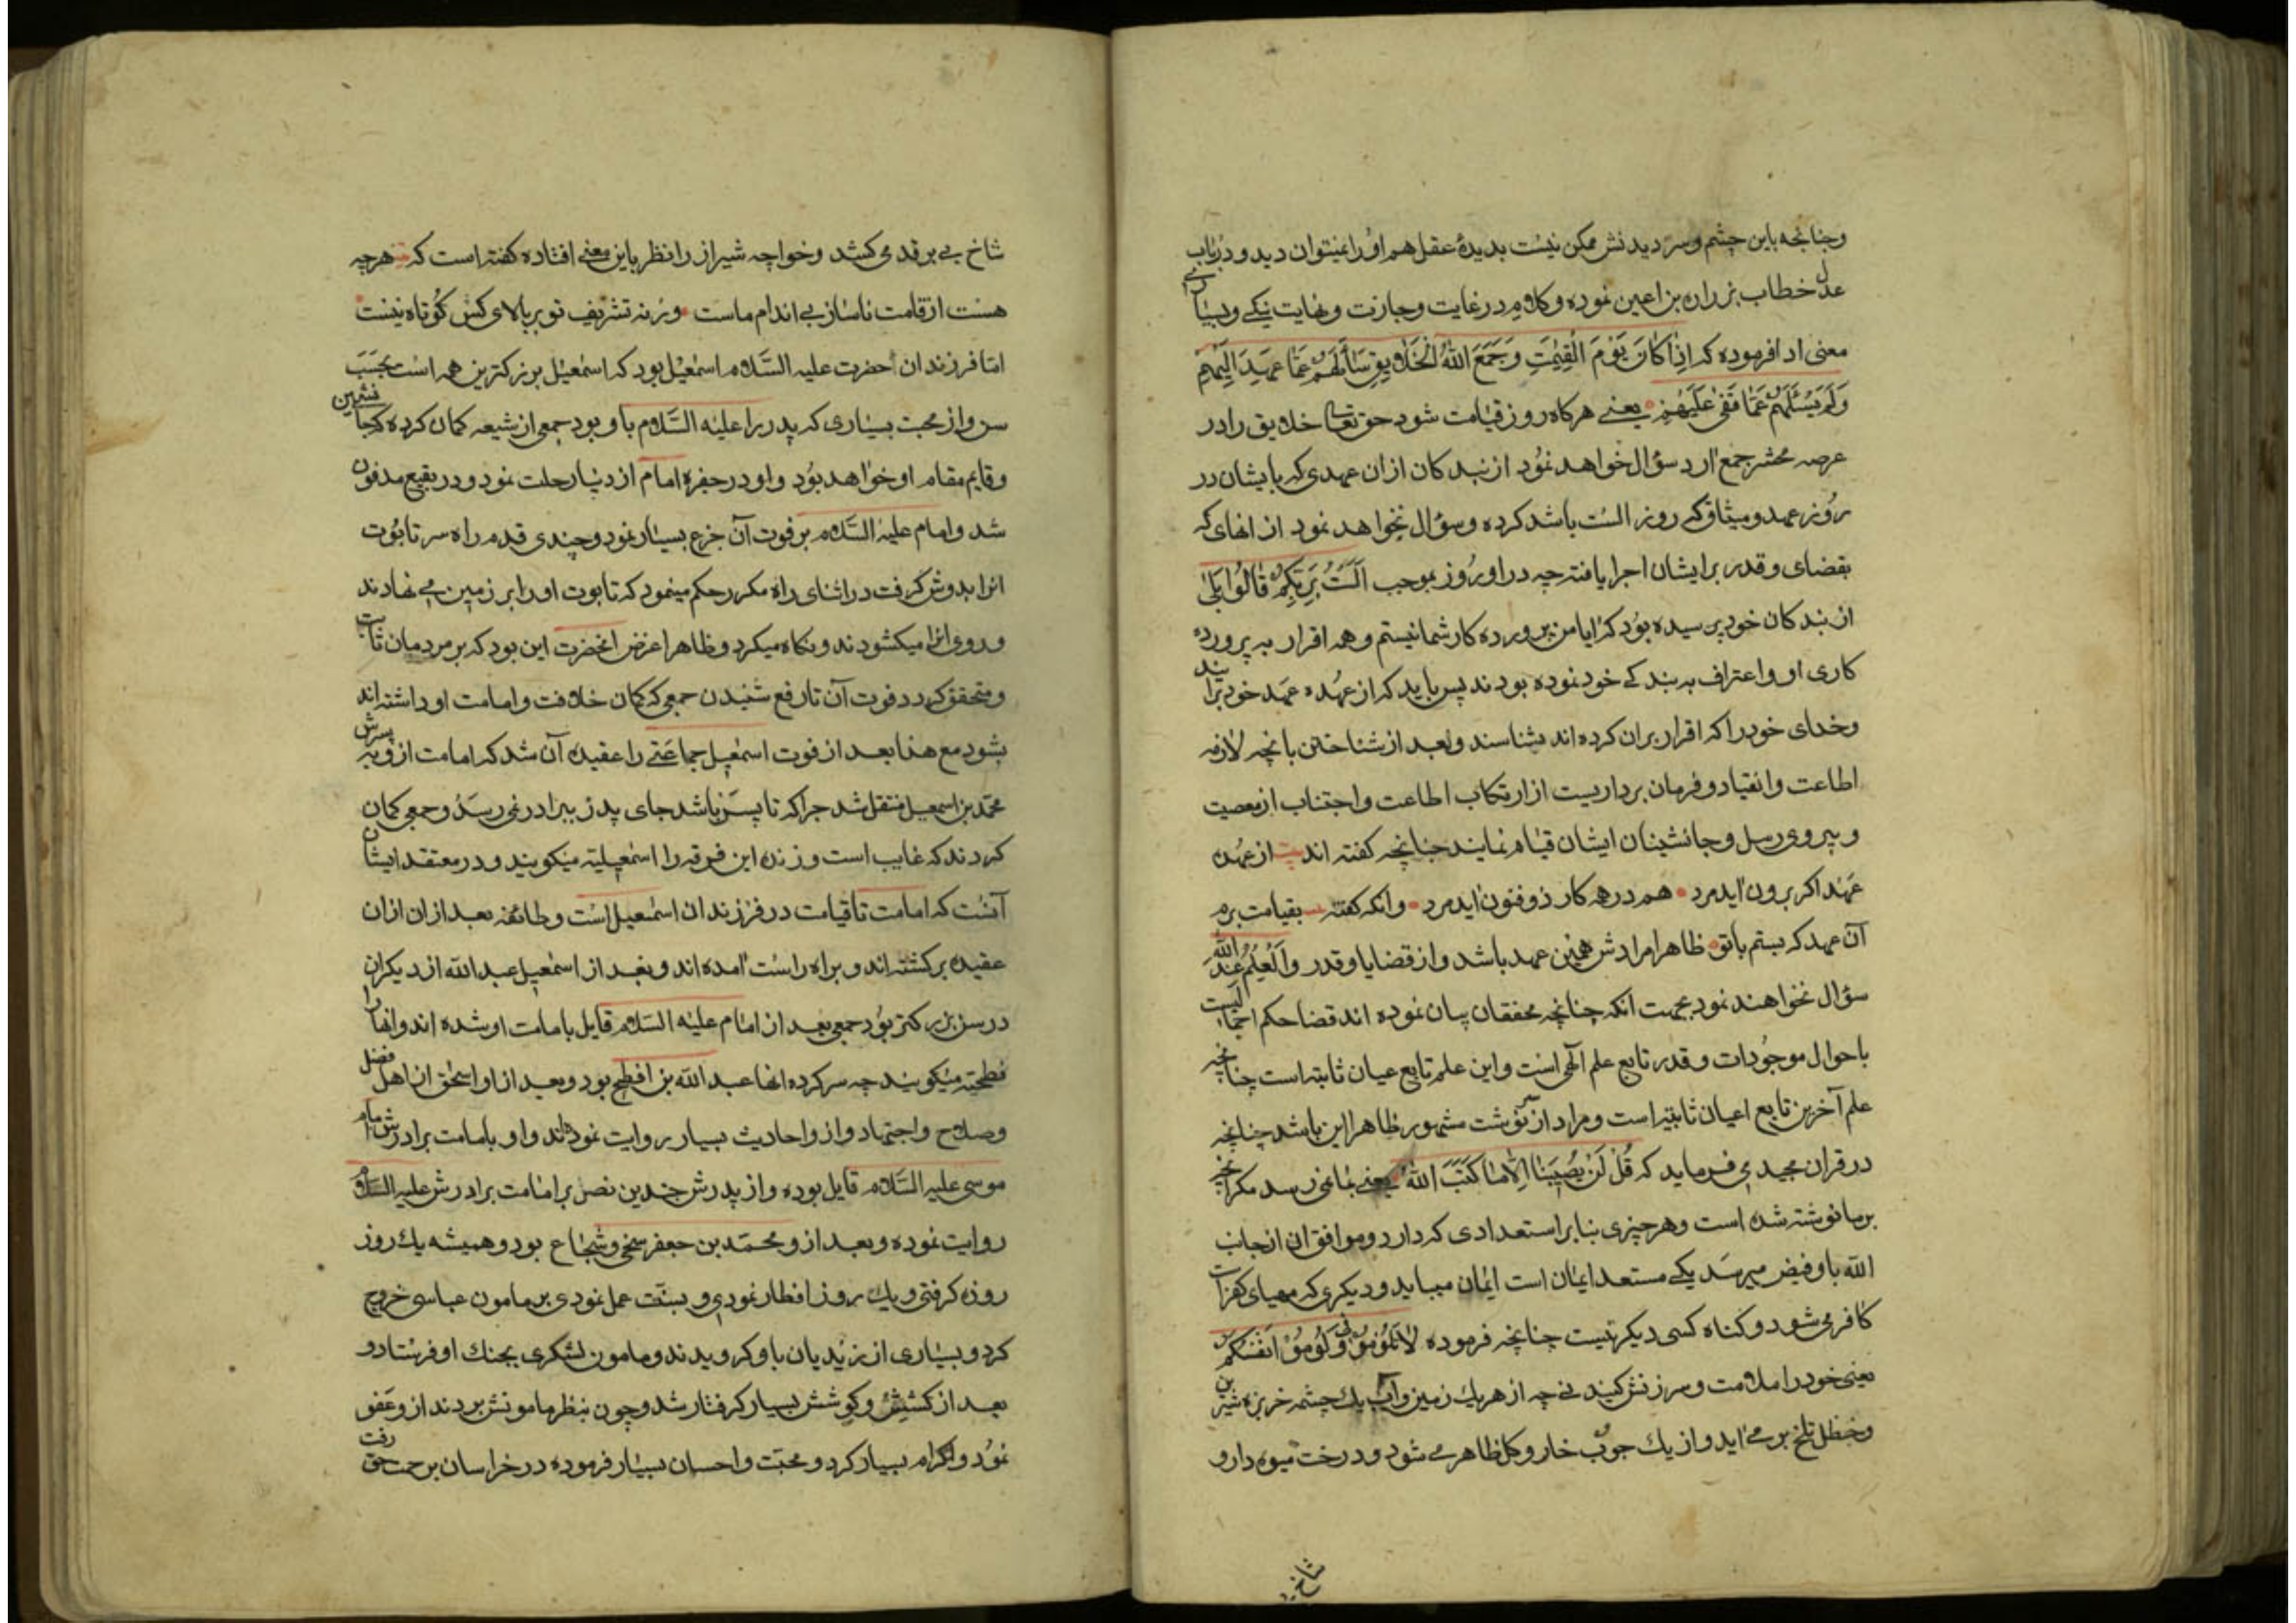 وچنانچه باین چشم وسر دیدنش ممکن نیست بدیدهٔ عقل هم اورا نمیتوان دید و در باب
عدل خطاب بزراره بن اعین نموده وکلام در غایت وجازت ونهایت نیکی وبسیاری
معنی ادا فرموده که اِذا کانَ یَوْمَ الْقِیٰمَتِ وَجَمَعَ اللّٰهُ الْخَلایِقَ سَأَلَهُمْ عَمّا عَهِدَ اِلَیْهِمْ
وَلَمْ یَسْئَلْهُمْ عَمّا قَضٰی عَلَیْهِمْ یعنے هرکاه روز قیامت شود حق تعالی خلایق را در
عرصه محشر جمع ارد سؤال خواهد نمود از بندکان ازان عهدی که بایشان در
روز عهد ومیثاق که روز الست باشد کرده وسؤال نخواهد نمود از انهای که
بقضای وقدر برایشان اجرا یافته چه در او روز بموجب اَلَسْتُ بِرَبِّکُمْ قالُوا بَلٰی
از بندکان خود پرسیده بود که ایا من پرورده کار شما نیستم وهمه اقرار به پرورده
کاری او واعتراف به بندکے خود نموده بودند پس باید که از عهده عهد خود برایند
وخدای خود را که اقرار بران کرده اند بشناسند وبعد از شناختن بانچه لازمه
اطاعت وانقیاد وفرمان برداریست از ارتکاب اطاعت واجتناب از معصیت
وپیروی رسل وجانشینان ایشان قیام نمایند چنانچه کفته اند بیت از عهده
عهد اکر برون اید مرد هم در همه کار ذو فنون اید مرد وانکه کفته بقیامت برم
آن عهد که بستم باتو ظاهرا مرادش همین عهد باشد واز قضایا وقدر وَالْعِلْمُ عِنْدَ اللّٰه
سؤال نخواهند نمود بجهت انکه چنانچه محققان بیان نموده اند قضا حکم اجمالیست
باحوال موجودات وقدر تابع علم آلهی است واین علم تابع عیان ثابته است چنانچه
علم آخرین تابع اعیان ثابته است ومراد از سرنوشت مشهور ظاهرا این باشد چنانچه
در قران مجید می فرماید که قُلْ لَنْ یُصیبَنا اِلّا ما کَتَبَ اللّٰهُ یعنے بمانمی رسد مکر انچه
برما نوشته شده است وهر چیزی بنابر استعدادی که دارد وموافق ان از جانب
الله باو فیض میرسد یکے مستعد ایمان است ایمان میباید ودیکری که مهیای کفر است
کافر می شود وکناه کسی دیکر نیست چنانچه فرموده لا تَلُومُونی وَلُومُوْا اَنْفُسَکُمْ
یعنی خود را ملامت وسرزنش کنید نے چه از هر یک زمین واب یک چشمه خربزه شیرین
وحنظل تلخ بر مے اید واز یک جوب خار وکل ظاهر مے شود ودرخت میوه دار و
شاخ بے
شاخ بے بر قد می کشد وخواجه شیراز را نظر باین معنے افتاده کفته است که هرچه
هست از قامت ناساز بے اندام ماست ورنه تشریف تو بر بالای کس کوتاه نیست
امّا فرزندان احضرت علیه السَّلام اسمعیل بود که اسمعیل بزرکترین همه است بحسب
سن واز محبت بسیاری که پدر برا علیه السَّلام باو بود جمعی از شیعه کمان کرده که جانشین
وقایم مقام او خواهد بود واو در حیوة امام از دنیا رحلت نمود ودر بقیع مدفون
شد وامام علیه السَّلام بر فوت آن جزع بسیار نمود وچندی قدم راه سر تابوت
انرا بدوش کرفت در اثنای راه مکرر حکم مینمود که تابوت اورا بر زمین می نهادند
وروی انرا میکشودند ونکاه میکرد وظاهرا غرض انحضرت این بود که بر مردمان ثابت
ومتحقق کردد فوت آن تا رفع شنیدن جمعی که کمان خلافت وامامت او داشته اند
بشود مع هذا بعد از فوت اسمعیل جماعتے را عقیده آن شد که امامت ازو به پسرش
محمّد بن اسمعیل منتقل شد چرا که تا پسر باشد جای پدر ببرادر نمی رسد وجمعی کمان
کردند که غایب است وزنده این فرقه را اسمعیلیّه میکویند ودر معتقد ایشان
آنست که امامت تا قیامت در فرزندان اسمعیل است وطائفه بعد ازان ازان
عقیده برکشته اند وبراه راست امده اند وبعد از اسمعیل عبد الله از دیکران
در سن بزرکتر بود جمعی بعد از امام علیه السَّلام قایل بامامت او شده اند وانها را
فطحیّه میکویند چه سرکرده انها عبد الله بن افطح بود وبعد از او اسحٰق از اهل فضل
وصلاح واجتهاد واز واحادیث بسیار روایت نموده اند واو بامامت برادرش امام
موسی علیه السَّلام قایل بوده واز پدرش چندین نص بر امامت برادرش علیه السَّلام
روایت نموده وبعد از ومحمّد بن جعفر سخی وشجاع بود وهمیشه یک روز
روزه کرفتی ویک روز افطار نمودی وبسنّت عمل نمودی بر مامون عباسی خروج
کرد وبسیاری از زیدیان باو کرویدند ومامون لشکری بجنک او فرستاد و
بعد از کشش وکوشش بسیار کرفتار شد وچون بنظر مامونش بردند از وعفو
نمود واکرام بسیار کرد ومحبّت واحسان بسیار فرموده در خراسان برحمت حق رفت